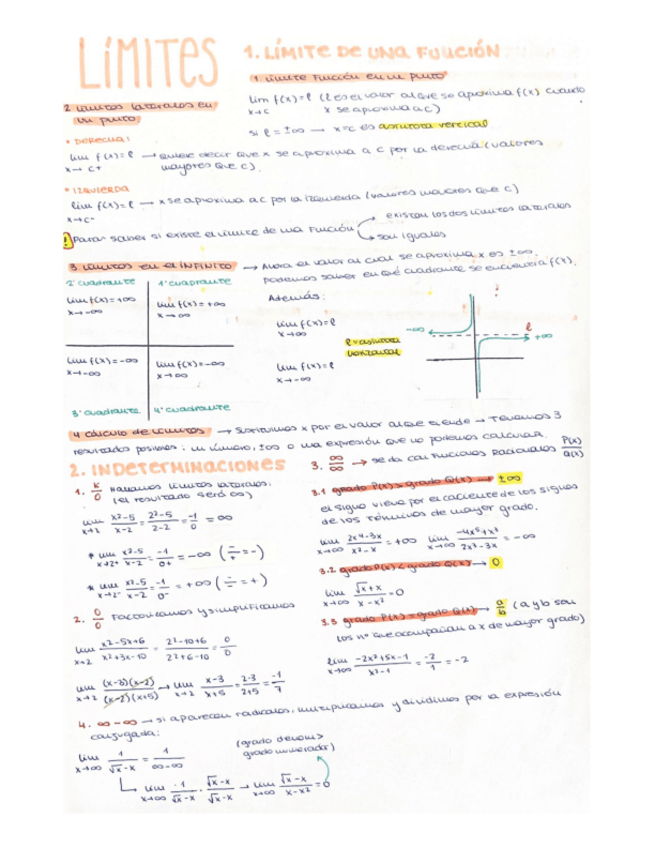 LÍMITES
1. LÍMITE DE UNA FUNCIÓN
1 Límite función en un punto
lim f(x)=l (l es el valor al que se aproxima f(x) cuando
x→c x se aproxima a c)
si l = ±∞ → x=c es asíntota vertical
2 Límites laterales en
un punto
* DERECHA:
lim f(x)=l → quiere decir que x se aproxima a c por la derecha (valores
x→c+ mayores que c).
* IZQUIERDA
lim f(x)=l → x se aproxima a c por la izquierda (valores que c)
x→c-
! Para saber si existe el límite de una función
existan los dos límites laterales
son iguales
3 Límites en el INFINITO → Ahora el valor al cual se aproxima x es ±∞.
Podemos saber en qué cuadrante se encuentra f(x).
2º cuadrante 1º cuadrante
lim f(x)=+∞ lim f(x)=+∞
x→-∞ x→∞
lim f(x)=-∞ lim f(x)=-∞
x→-∞ x→∞
3º cuadrante 4º cuadrante
Además:
lim f(x)=l
x→∞
l=asíntota
horizontal
lim f(x)=l
x→-∞
-∞ l +∞
4 Cálculo de límites → Sustituimos x por el valor al que tiende → Tenemos 3
resultados posibles: un número, ±∞ o una expresión que no podemos calcular.
2. INDETERMINACIONES
1. k/0 Hallamos límites laterales:
(el resultado será ∞)
lim x→2 x²-5/x-2 = 2²-5/2-2 = -1/0 = ∞
* lim x→2+ x²-5/x-2 = -1/0+ = -∞ (-/+ = -)
* lim x→2- x²-5/x-2 = -1/0- = +∞ (-/- = +)
2. 0/0 Factorizamos y simplificamos
lim x→2 x²-5x+6/x²+3x-10 = 2²-10+6/2²+6-10 = 0/0
lim x→2 (x-3)(x-2)/(x-2)(x+5) → lim x→2 x-3/x+5 = 2-3/2+5 = -1/7
3. ∞/∞ → se da con funciones racionales P(x)/Q(x)
3.1 grado P(x) > grado Q(x) → ±∞
el signo viene por el cociente de los signos
de los términos de mayor grado.
lim x→∞ 2x⁴-3x/x²-x = +∞ lim x→∞ -4x⁵+x³/2x³-3x = -∞
3.2 grado P(x) < grado Q(x) → 0
lim x→∞ √x+x/x-x² = 0
3.3 grado P(x) = grado Q(x) → a/b (a y b son
los nº que acompañan a x de mayor grado)
lim x→∞ -2x²+5x-1/x²-1 = -2/1 = -2
4. ∞-∞ → si aparecen radicales, multiplicamos y dividimos por la expresión
conjugada:
lim x→∞ 1/√x-x = 1/∞-∞
(grado denom>
grado numerador)
lim x→∞ 1/√x-x · √x-x/√x-x → lim x→∞ √x-x/x-x² = 0